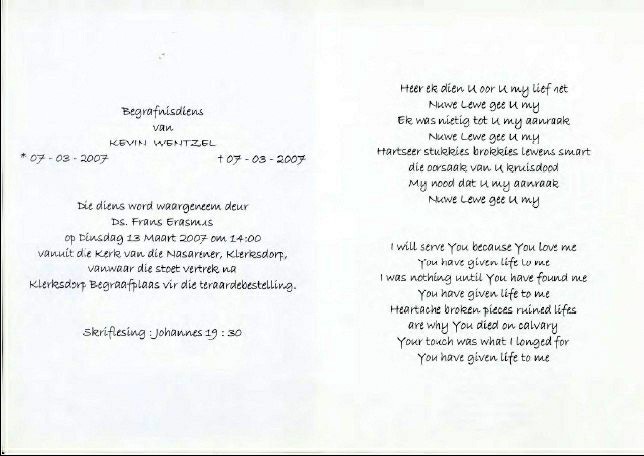 Begrafnisdiens
van
KEVIN WENTZEL
* 07 - 03 - 2007 † 07 - 03 - 2007
Die diens word waargeneem deur
Ds. Frans Erasmus
op Dinsdag 13 Maart 2007 om 14:00
vanuit die Kerk van die Nasarener, Klerksdorp,
vanwaar die stoet vertrek na
Klerksdorp Begraafplaas vir die teraardebestelling.
Skriflesing : Johannes 19 : 30
Heer ek dien U oor U my lief het
Nuwe Lewe gee U my
Ek was nietig tot U my aanraak
Nuwe Lewe gee U my
Hartseer stukkies brokkies lewens smart
die oorsaak van U kruisdood
My nood dat U my aanraak
Nuwe Lewe gee U my
I will serve You because You love me
You have given life to me
I was nothing until You have found me
You have given life to me
Heartache broken pieces ruined lifes
are why You died on calvary
Your touch was what I longed for
You have given life to me